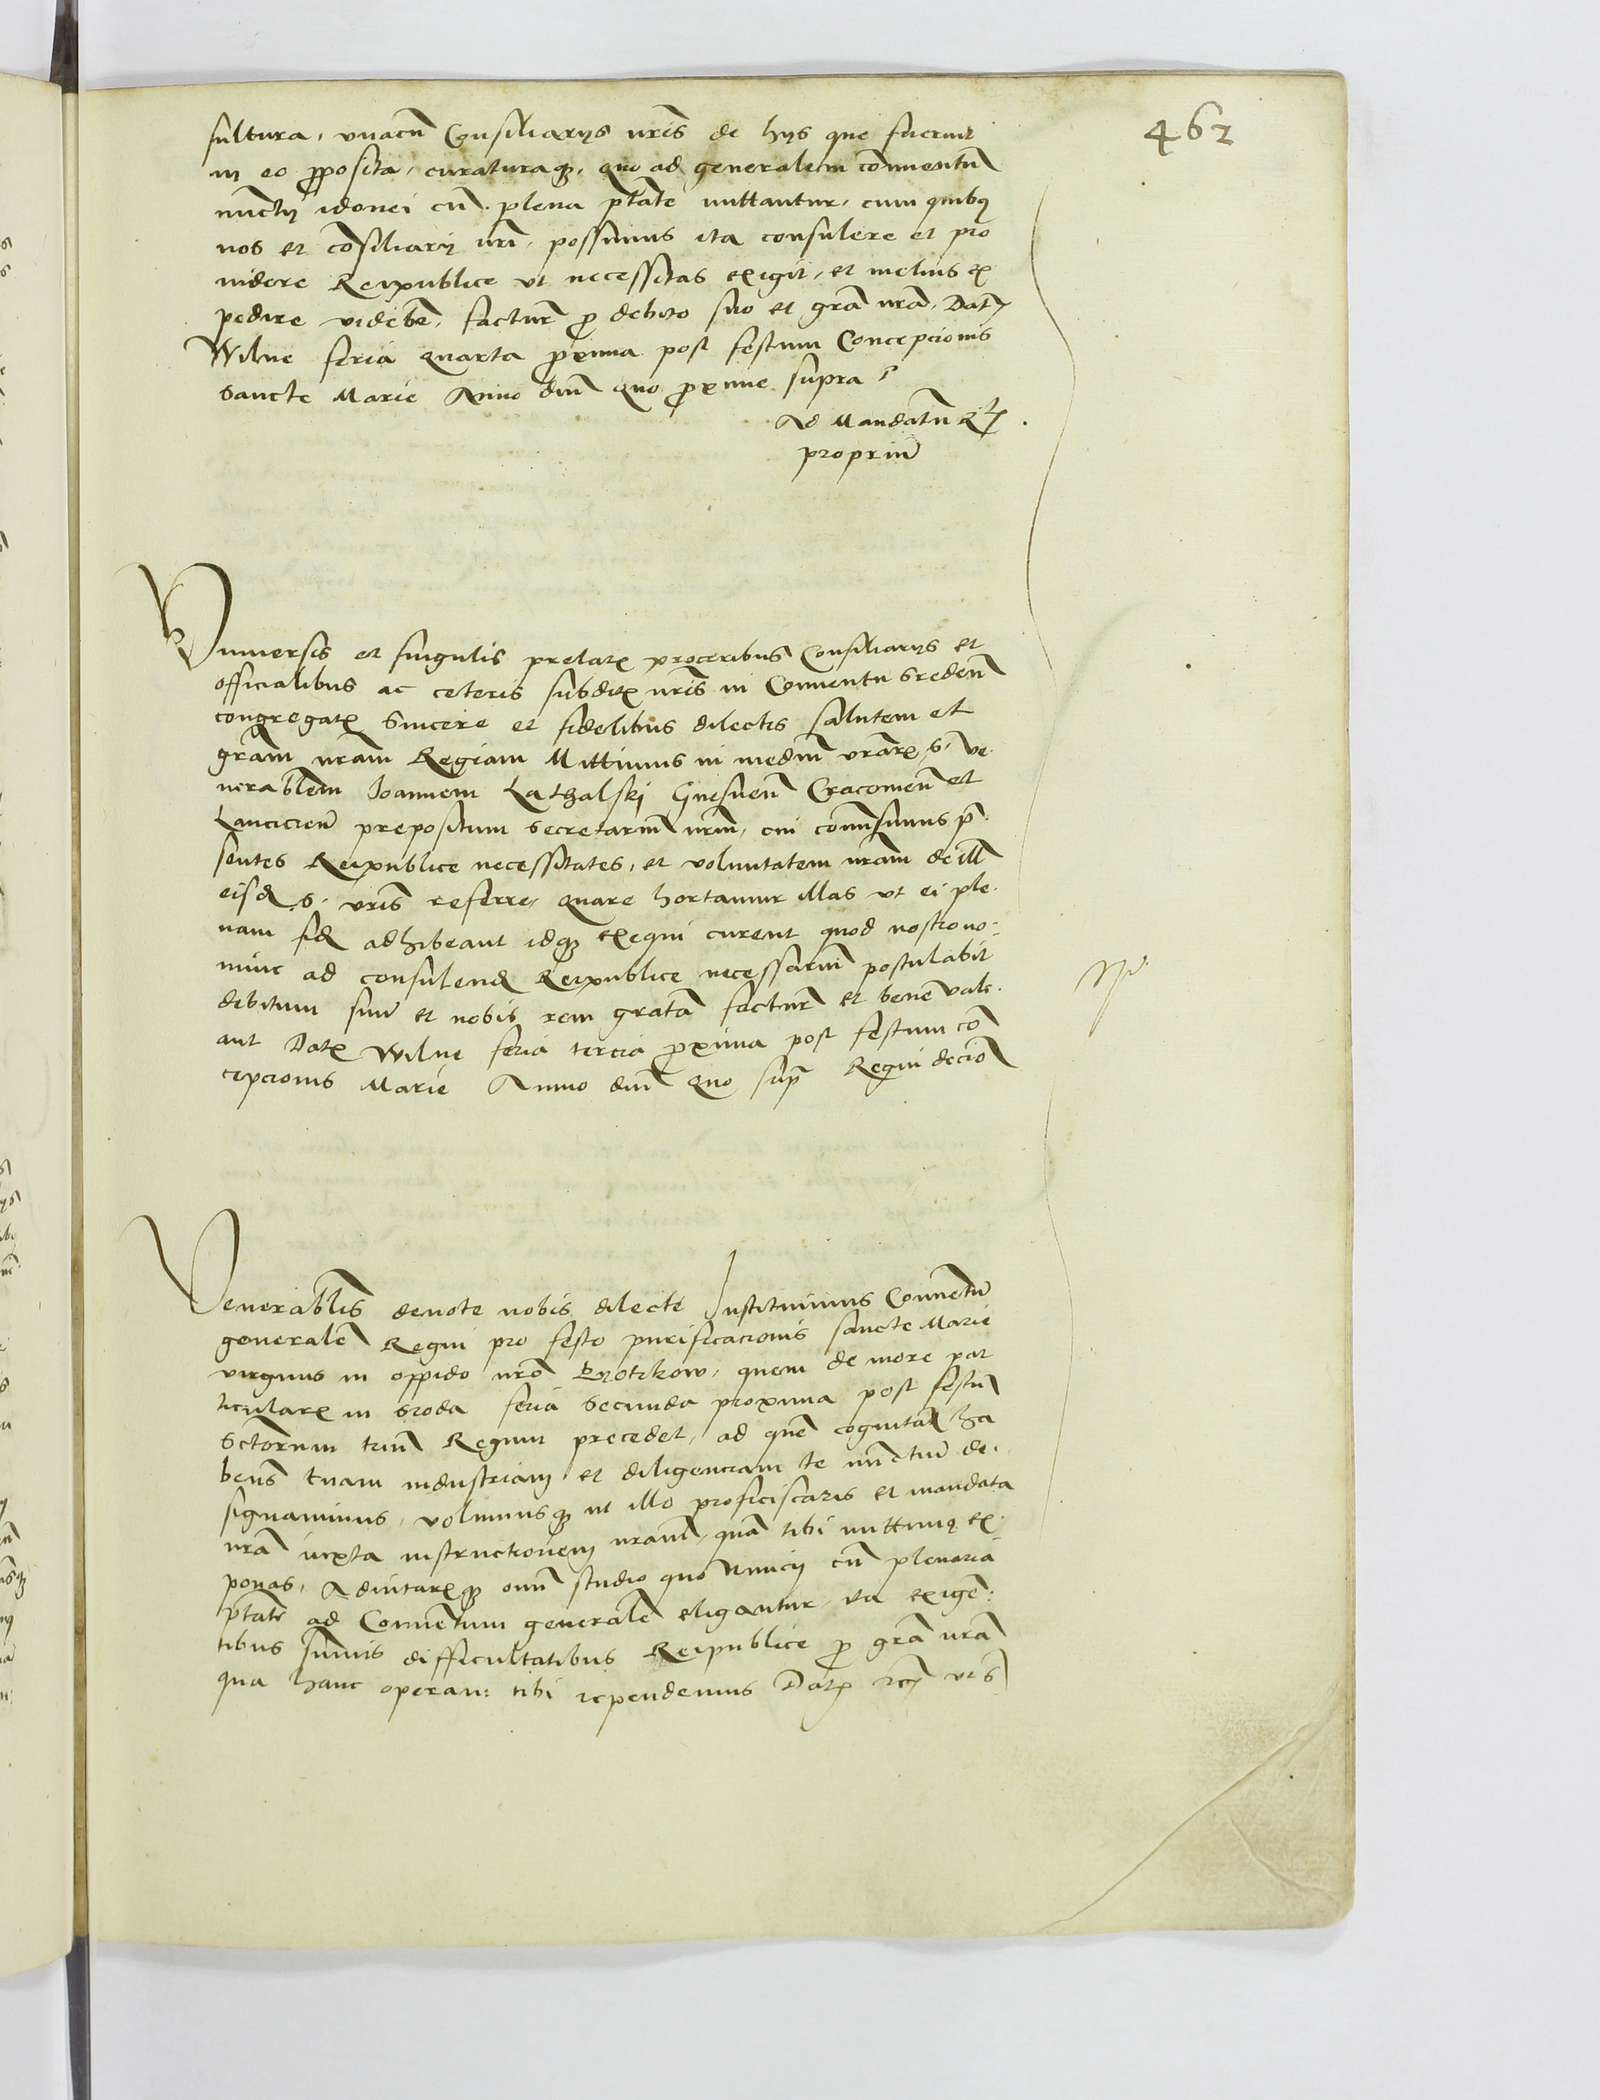 462
sultura, vnacũ Consiliarijs nr̃is de hijs que fuerint
in eo p̱posita, curaturaqꝫ, quo ad generalem conuentũ
nunctij idonei cũ plena ptãte mittantur, cum quibꝯ
nos et cõsiliarij nr̃i, possimus ita consulere et pro
uidere Reipublice vt necessitas exigit, et melius ex
pedire videbit̃, factur̃ p̱ debito suo et grã nrã, Datꝫ
Wilne feria quarta p̱xima post festum Concepcionis
Sancte Marie Anno dnĩ quo p̱xime supra
Ad Mandatũ Rꝫ
propriũ
Vniuersis et singulis prelatꝫ proceribus Consiliarijs et
officialibus ac ceteris subditꝫ nr̃is in Conuentu Sredeñ
congregatꝫ Sincere et fidelibus dilectis salutem et
grãm nrãm Regiam Mittimus in mediũ vrãrꝫ, S, ve
nerablem̃ Joannem Lathalski Gnesneñ Cracouieñ et
Lanciciẽn prepositum Secretariũ nr̃m, cui com̃isimus p̃
sentes Reipublice necessitates, et voluntatem nrãm de ill̃
eisdꝫ, S, vr̃is referre, quare hortamur illas vt ei ple
nam fidꝫ adhibeant idqꝫ exequi curent quod nostro no
mine ad consulendꝫ Reipublice necessariũ postulabit
debitum suũ et nobis rem gratã factur̃ et bene vale
ant Datꝫ Wilne feria tercia p̱xima post festum cõ
cepcionis Marie Anno dnĩ quo sup̃ Regni decĩo
Venerablis̃ deuote nobis dilecte Instituimus Conuẽtũ
generalẽ Regni pro festo purificacionis sancte Marie
virginis in oppido nrõ Pyotrkow, quem de more par
ticularꝫ in Sroda feria Secunda proxima post festũ
Sctõrum triũ Regum precedet, ad quẽ cognitã ha
bens tuam industriam, et diligenciam te nunctiũ de
signauimus, volumusqꝫ ut illo proficiscaris et mandata
nrã iuxta instructionem nrãm, quã tibi mittimꝯ ex
ponas, Adnitarꝫqꝫ omĩ studio quo Nuncij cũ plenaria
ptãte ad Conuẽtum generalẽ eligantur, ita exigẽ
tibus sum̃is difficultatibus Reipublice p̱ grã nrã
qua hanc operam tibi rependemus Datꝫ ut s̃